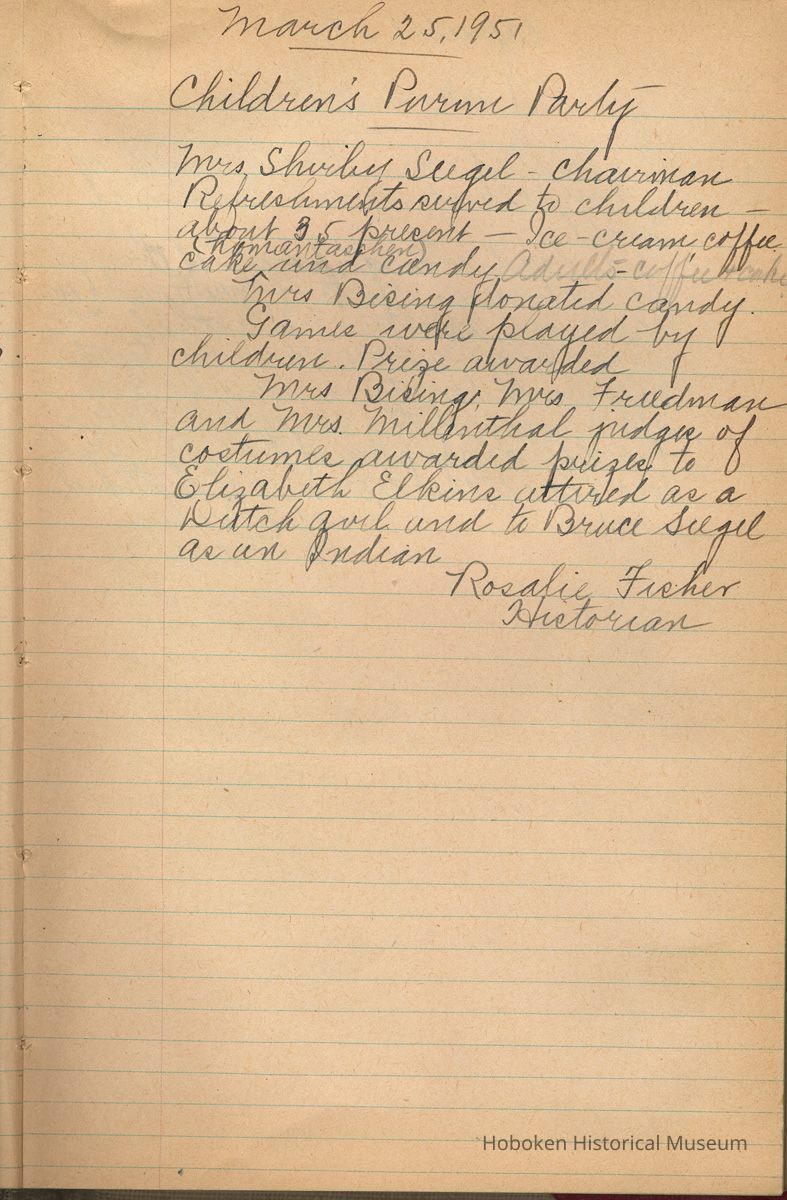 March 25, 1951
Children's Purim Party
Mrs. Shirley Siegel - Chairman
Refreshments served to children -
about 35 present - Ice-cream coffee
(homantaschen)
cake and candy Adults-coffee + cake
Mrs Bising donated candy.
Games were played by
children. Prize awarded
Mrs Bising, Mrs. Friedman
and Mrs. Millenthal judges of
costumes awarded prizes to
Elizabeth Elkins attired as a
Dutch girl and to Bruce Siegel
as an Indian
Rosalie Fisher
Historian
Hoboken Historical Museum